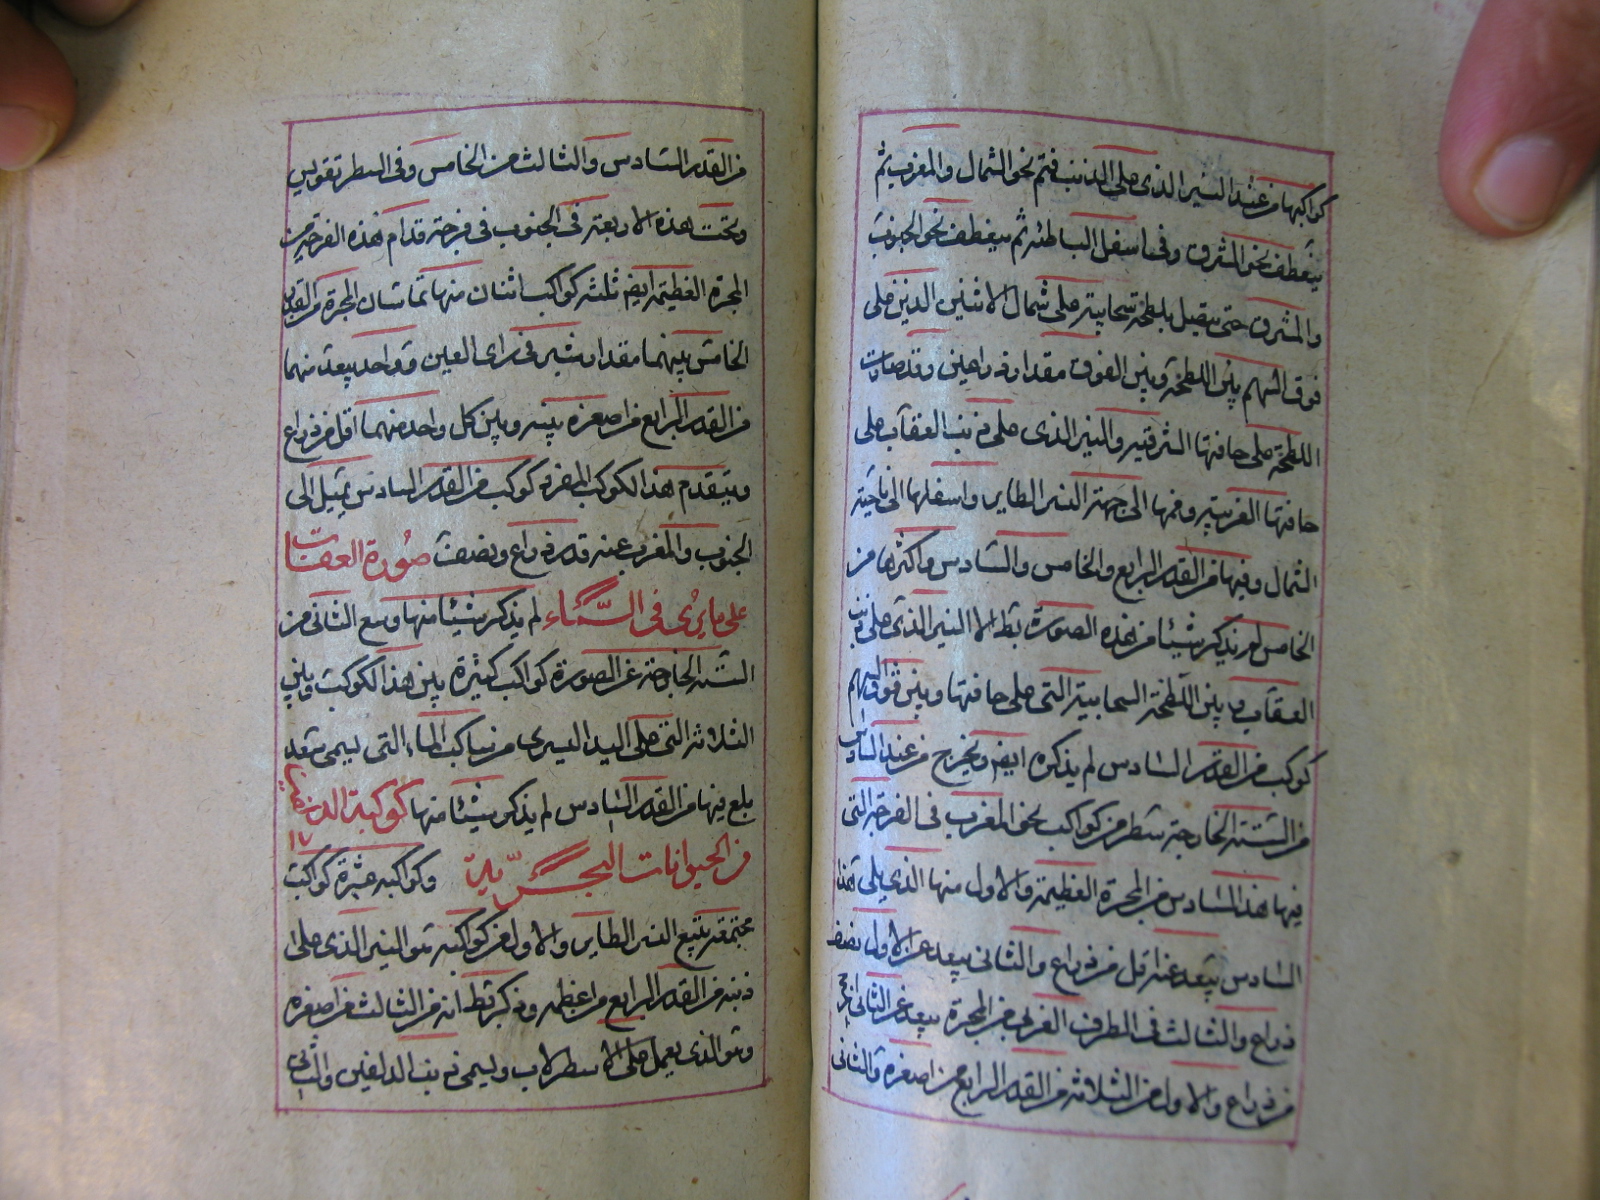 كواكبها من عند النير الذى على الذنب فتم نحو الشمال والمغرب ثم
ينعطف نحو المشرق وفيما اسفل الباطنه ثم ينعطف نحو الجنوب
والمشرق حتى يتصل بلطخة سحابية على شمال الاثنين الذين على
فوق السهم بين اللطخة وبين الفوق مقدار ذراعين وقد صارت
اللطخة على حافتها الشرقية والنير الذى على ذنب العقاب على
حافتها الغربية وفمها الى جهة النسر الطاير واسفلها الى ناحية
الشمال وفيها من القدر الرابع والخامس والسادس واكثرها من
الخامس لم يذكر شيئا من هذه الصورة بتة الا النير الذى على ذنب
العقاب وبين اللطخة السحابية التى على حافتها وبين فوق السهم
كوكب من القدر السادس لم يذكره ايضا ويخرج من عند السادس
من الستة الخارجة سطر من كواكب نحو المغرب فى الفرجة التى
فيها هذا السادس من المجرة العظيمة والاول منها الذى يلى هذا
السادس يبعد عنه اقل من ذراع والثانى يبعد عن الاول نصف
ذراع والثالث فى الطرف الغربى من المجرة يبعد عن الثانى ارجح
من ذراع والاول من الثلاثة من القدر الرابع من اصغره والثانى
من القدر السادس والثالث من الخامس وفى السطر تقويس
وتحت هذه الاربعة فى الجنوب فى فرجة قدام هذه الفرجة من
المجرة العظيمة ايضا ثلثة كواكب اثنان منها تماسان المجرة من القدر
الخامس بينهما مقدار شبر فى راى العين وواحد يبعد منهما
من القدر الرابع من اصغره بينه وبين كل واحد منهما اقل من ذراع
ويتقدم هذا الكوكب المفرد كوكب من القدر السادس يميل الى
الجنوب والمغرب عنه قدر ذراع ونصف صورة العقاب
على ما يرى فى السماء لم يذكر شيئا منها ومع الثانى من
الستة الخارجة عن الصورة كواكب كثيرة بين هذا الكوكب وبين
الثلاثة التى على اليد اليسرى من ساكب الماء التى يسمى سعد
بلع فيها من القدر السادس لم يذكر شيئا منها كوكبة الدلفين
١٧
من الحيوانات البحرية وكواكبه عشرة كواكب
مجتمعة يتبع النسر الطاير والاول من كواكبه هو النير الذى على
ذنبه من القدر الرابع من اعظمه وذكر بط انه من الثالث من اصغره
وهو الذى يعمل على الاسطرلاب ويسمى ذنب الدلفين والثانى